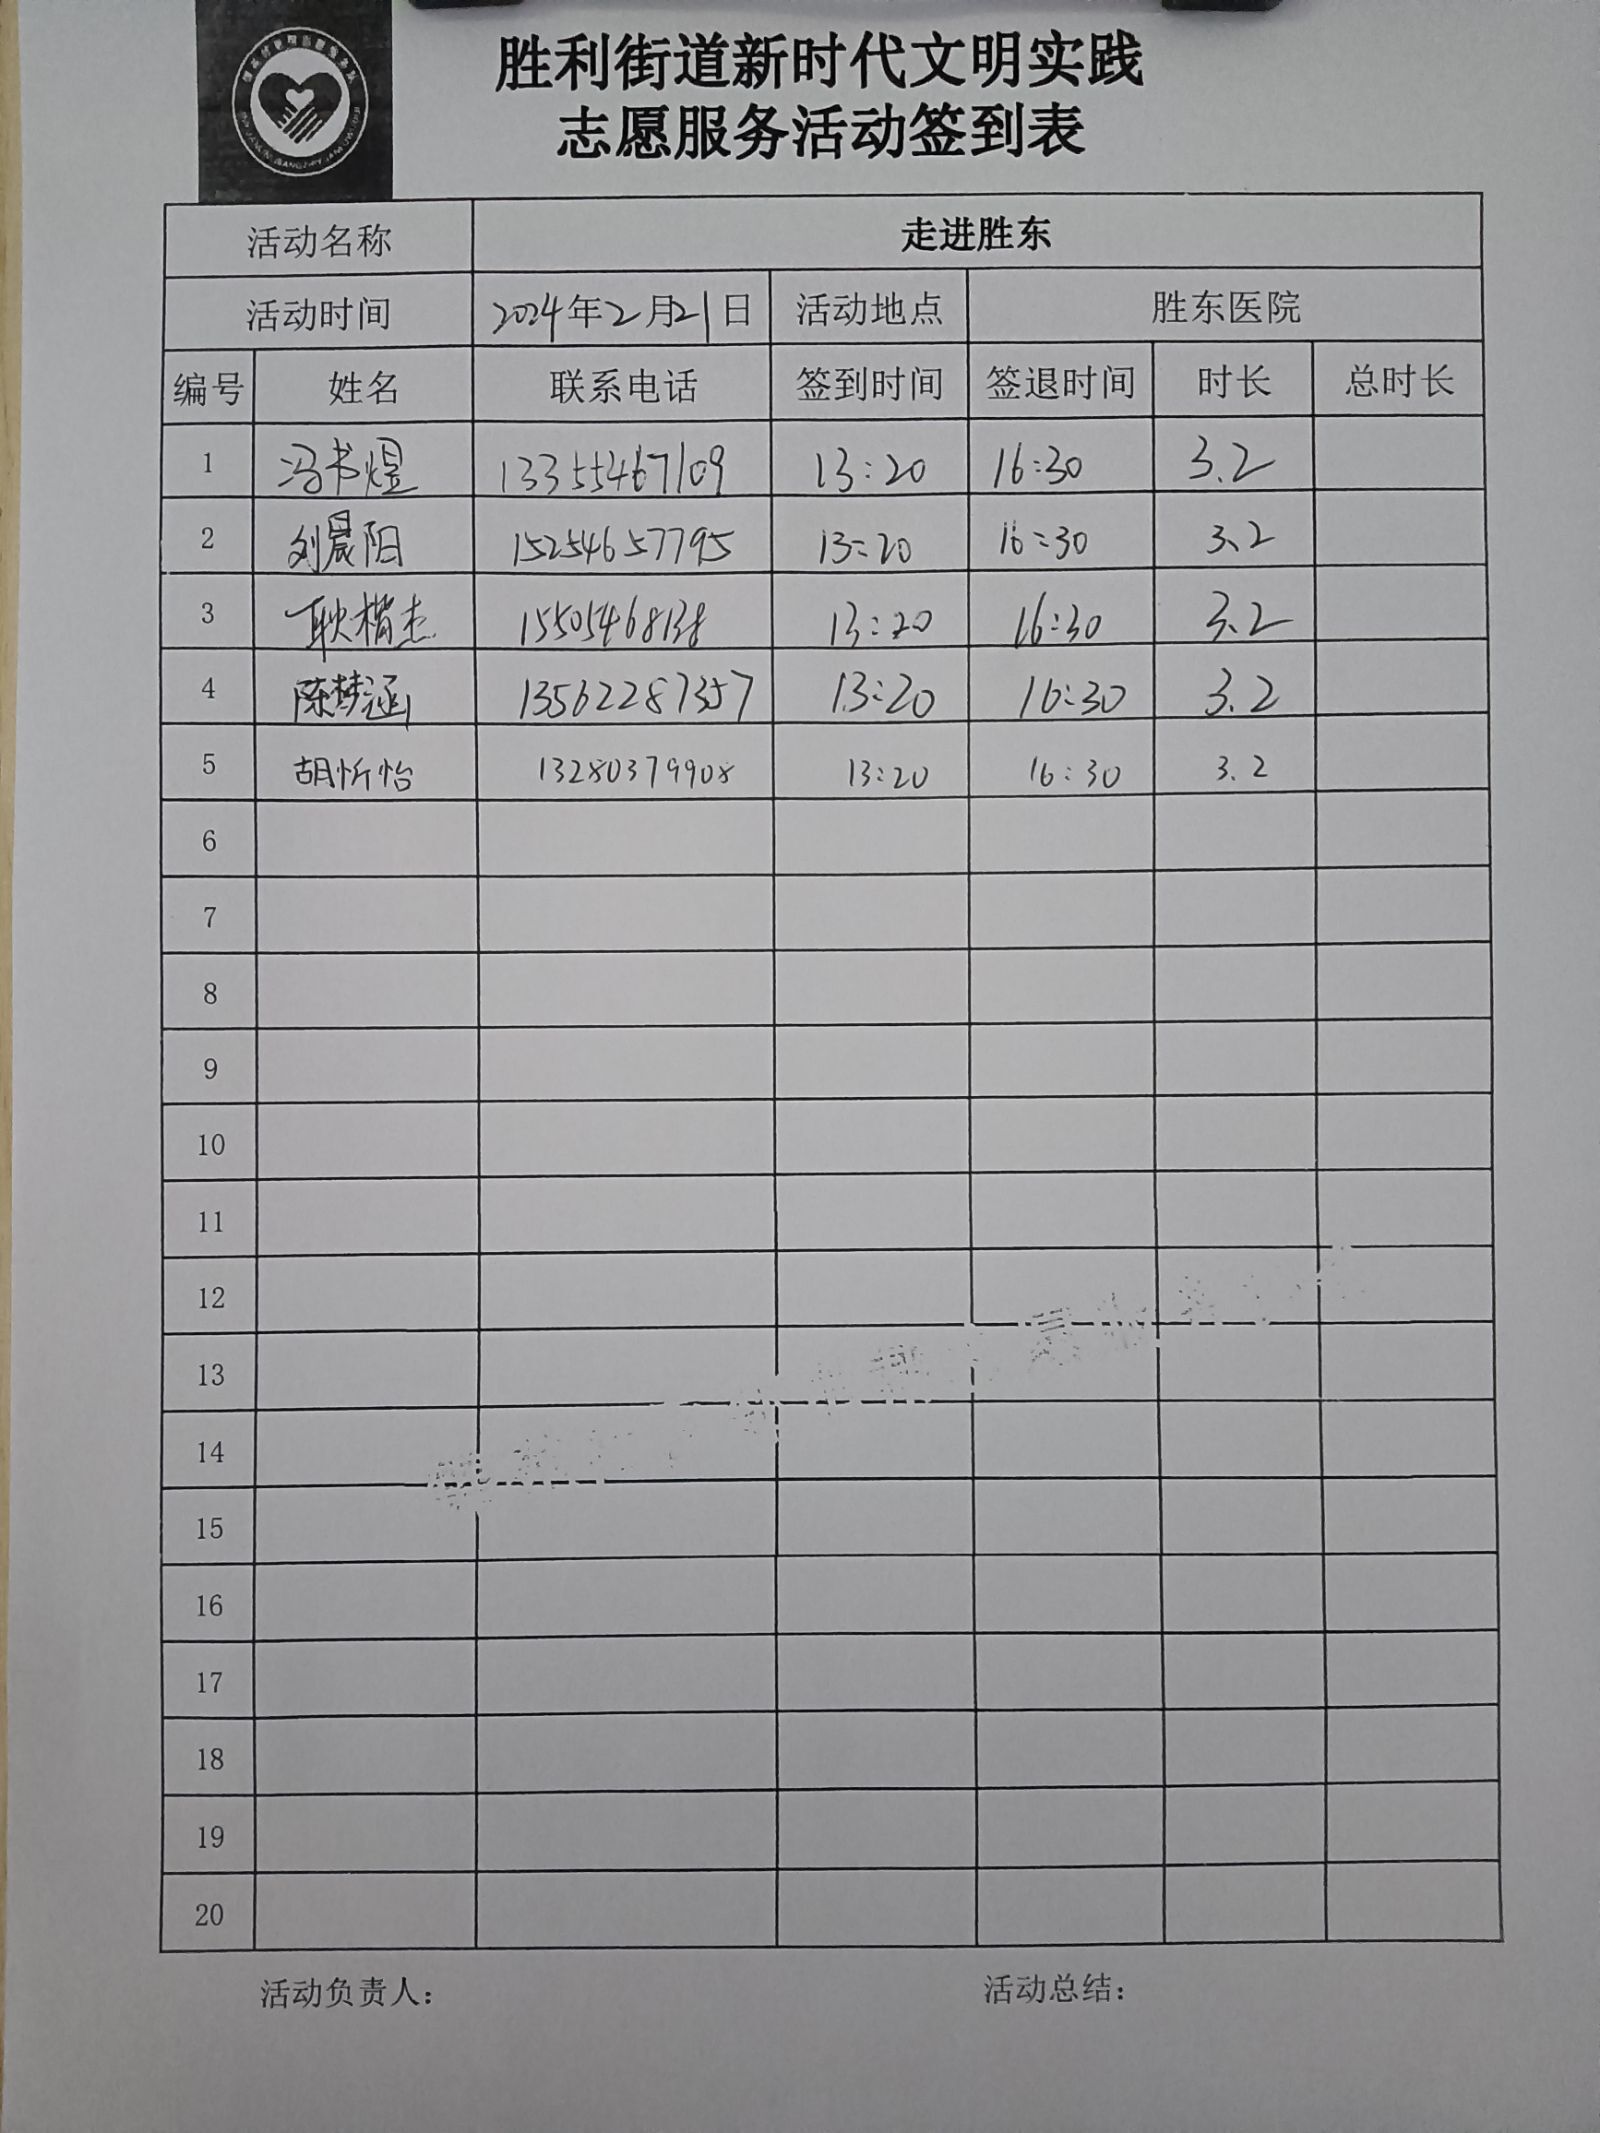 胜利街道新时代文明实践
志愿服务活动签到表
活动名称 走进胜东
活动时间 2024年2月21日 活动地点 胜东医院
编号 姓名 联系电话 签到时间 签退时间 时长 总时长
1 冯书煜 13355467109 13:20 16:30 3.2
2 刘晨阳 15254657795 13:20 16:30 3.2
3 耿楷杰 15505468138 13:20 16:30 3.2
4 陈梦涵 13562287357 13:20 16:30 3.2
5 胡忻怡 13280379908 13:20 16:30 3.2
6
7
8
9
10
11
12
13
14
15
16
17
18
19
20
活动负责人： 活动总结：